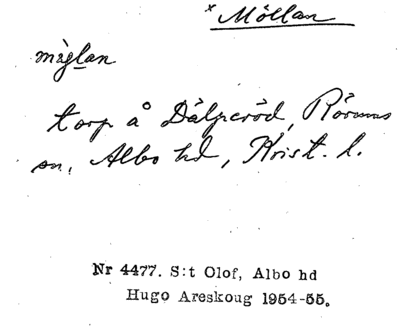 × Möllan
mỳlan
torp å Dälperöd, Rörums
sn, Albo hd, Krist. l.
Nr 4477. S:t Olof, Albo hd
Hugo Areskoug 1954-55.